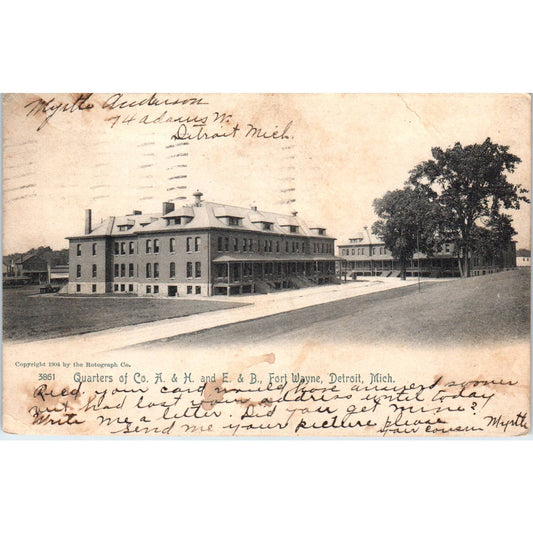 Myrtle Anderson
74 Adams W.
Detroit Mich.
Copyright 1904 by the Rotograph Co.
3861 Quarters of Co. A. & H. and E. & B., Fort Wayne, Detroit, Mich.
Recd. your card would have answered sooner
but had lost your address until today
Write me a letter. Did you get mine?
Send me your picture please
your cousin Myrtle